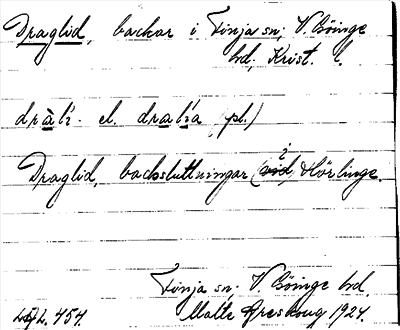 Draglid, backar i Finja sn; V. Göinge
hd, Krist. l.
dràlí- el. dralía (pl.)
i
Draglid, backsluttningar (vid) Hörlinge.
Finja sn; V. Göinge hd.
454. Malte Areskoug 1924.